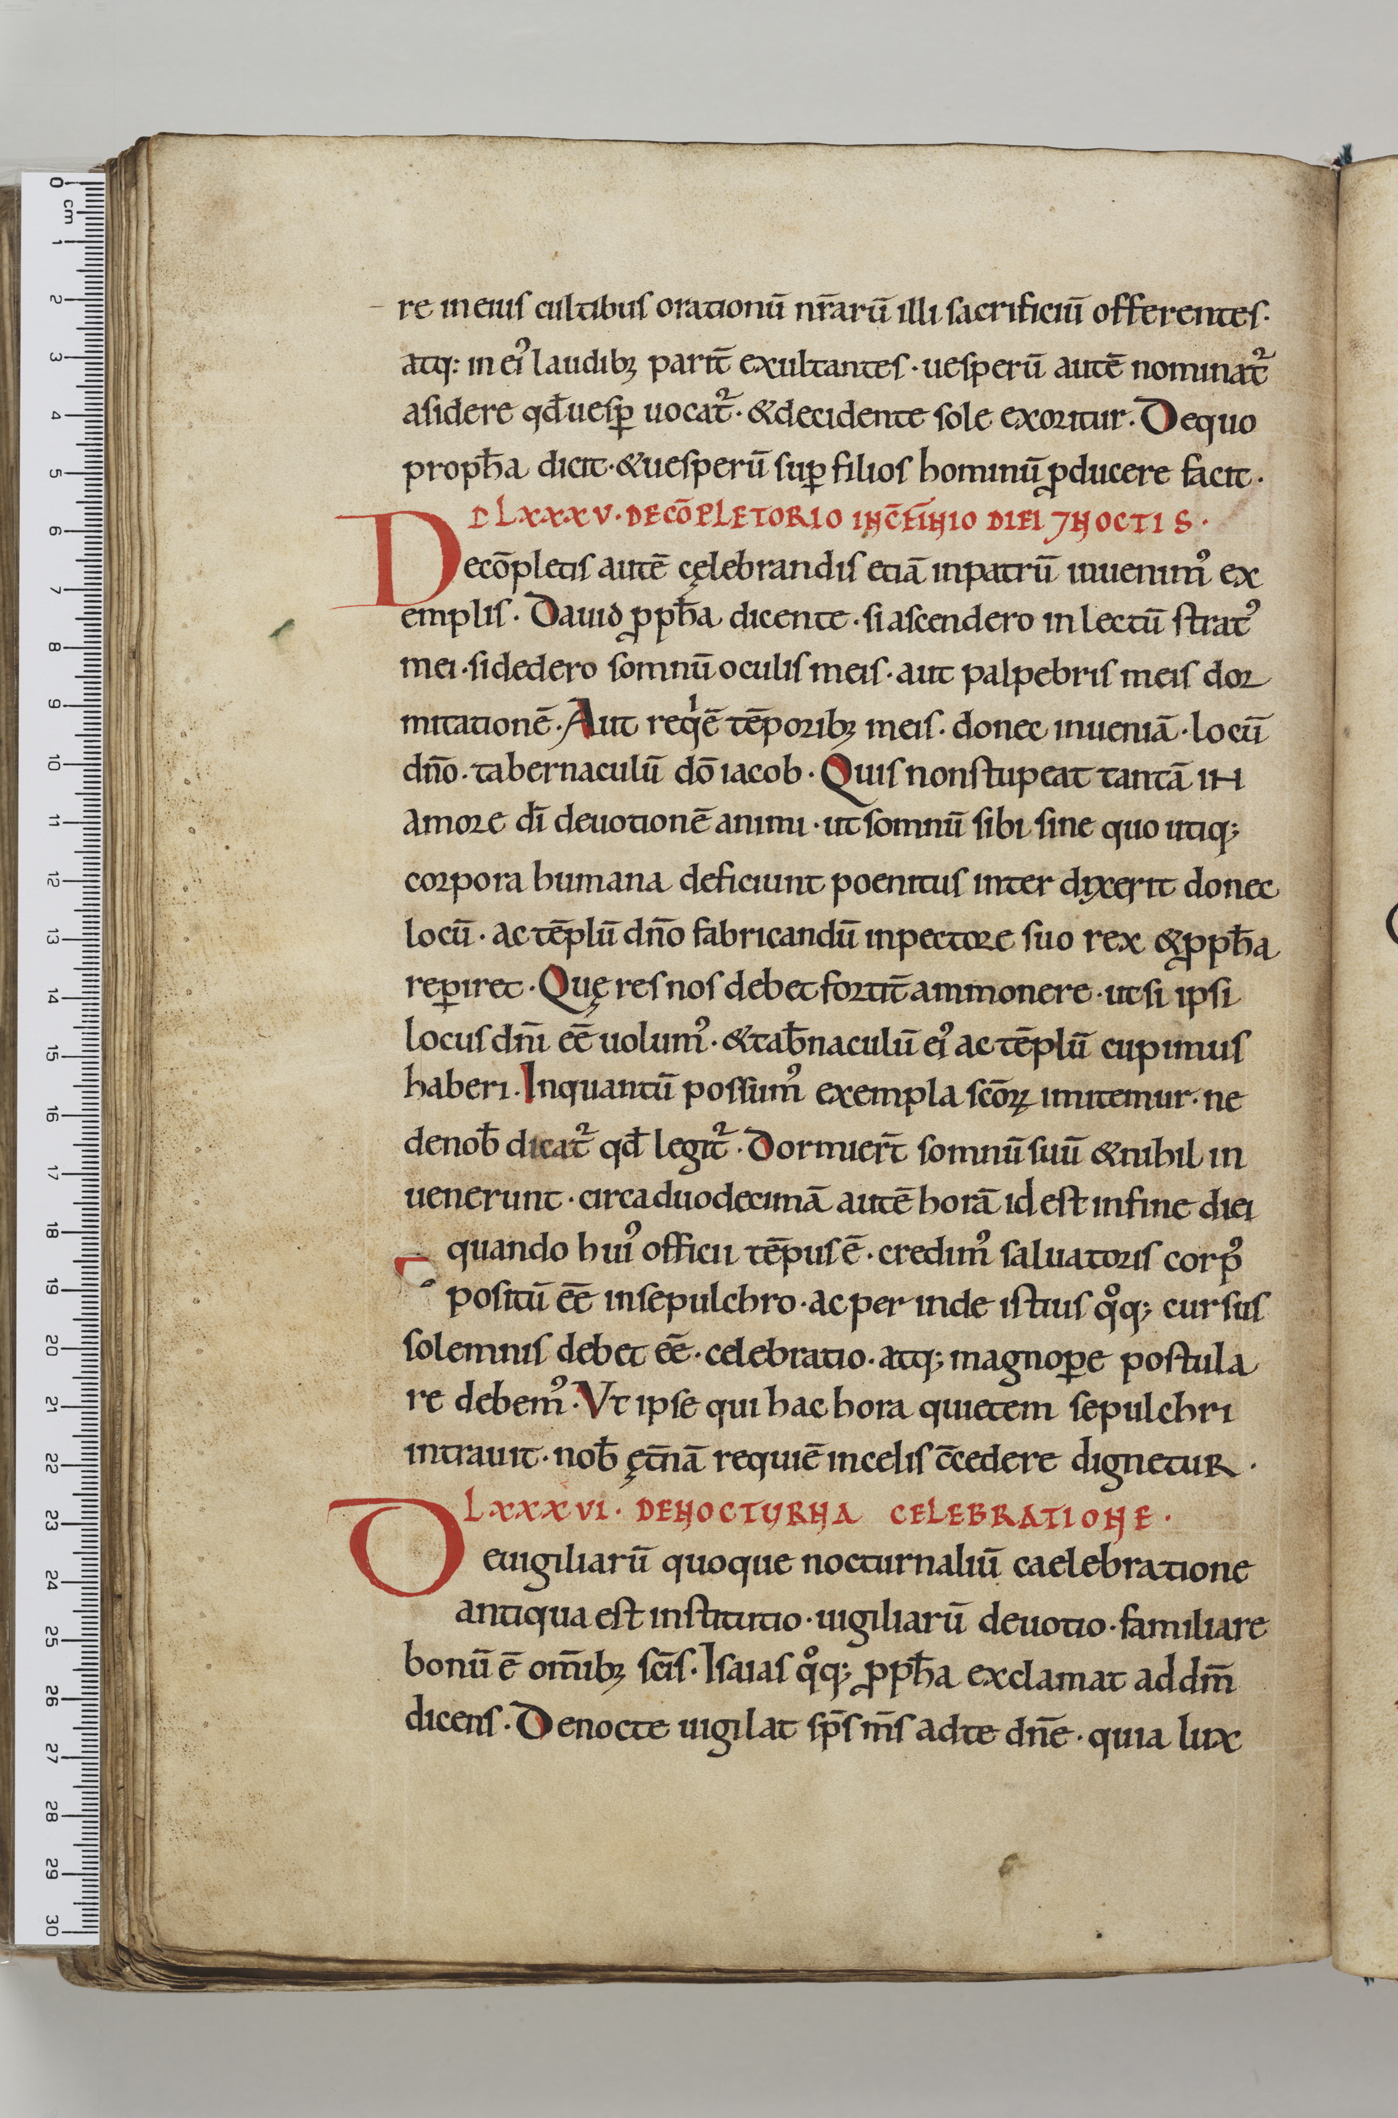 re in eius cultibus orationū nr̄arū illi sacrificiū offerentes·
atq: in ei᾿ laudibꝫ parit̄ exultantes · uesperū autē nominat᷑
asidere qđ uesꝑ uocat᷑· & decidente sole exoritur · De quo
proph̄a dicit · & uesperū suꝑ filios hominū ꝓducere facit ·
DLXXXV · DE CŌPLETORIO IN C̄FINIO DIEI ⁊ NOCTIS ·
De cōpletis autē cęlebrandis etiā in patrū inuenim᾿ ex
emplis · Dauid ꝓph̄a dicente · si ascendero in lectū strat᾿
mei · si dedero somnū oculis meis · aut palpebris meis dor
mitationē · Aut reqͥē tēporibꝫ meis · donec inueniā · locū
dn̄o · tabernaculū dō iacob · Quis non stupeat tantā in
amore dī deuotionē animi · ut somnū sibi sine quo utiq;
corpora humana deficiunt poenitus inter dixerit donec
locū · ac tēplū dn̄o fabricandū in pectore suo rex & ꝓph̄a
reꝑiret · Quę res nos debet fortit̄ ammonere · ut si ipsi
locus dn̄i eē uolum᾿ · & tab̄naculū ei᾿ ac tēplū cupimus
haberi · In quantū possum᾿ exempla scōꝝ imitemur · ne
de nob̄ dicat᷑ qđ legit᷑ · Dormier̄t somnū suū & nihil in
uenerunt · circa duodecimā autē horā id est in fine diei
quando hui᾿ officii tēpus ē · credim᾿ saluatoris corp᾿
positū eē in sepulchro · ac per inde istius qͦq; cursus
solemnis debet eē · celebratio · atq; magnoꝑe postula
re debem᾿ · Vt ipse qui hac hora quietem sepulchri
intrauit · nob̄ ęt̄nā requiē in celis c̄cedere dignetur ·
LXXXVI · DE NOCTURNA CELEBRATIONE ·
De uigiliarū quoque nocturnaliū caelebratione
antiqua est institutio · uigiliarū deuotio · familiare
bonū ē om̄ibꝫ scīs · Isaias qͦq; ꝓph̄a exclamat ad dm̄
dicens · De nocte uigilat sp̄s m̄s ad te dn̄e · quia lux
0 cm 1 2 3 4 5 6 7 8 9 10 11 12 13 14 15 16 17 18 19 20 21 22 23 24 25 26 27 28 29 30